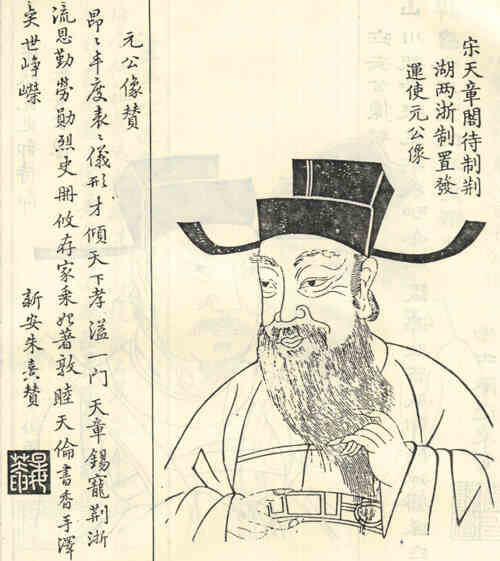 宋天章閣待制荆
湖两浙制置發
運使元公像
元公像贊
昂〻丰度表〻儀形才傾天下孝溢一門天章錫寵荆浙
流恩勤勞勛烈史冊攸存家乘昭著敦睦天倫書香手澤
奕世崢嶸
新安朱熹贊